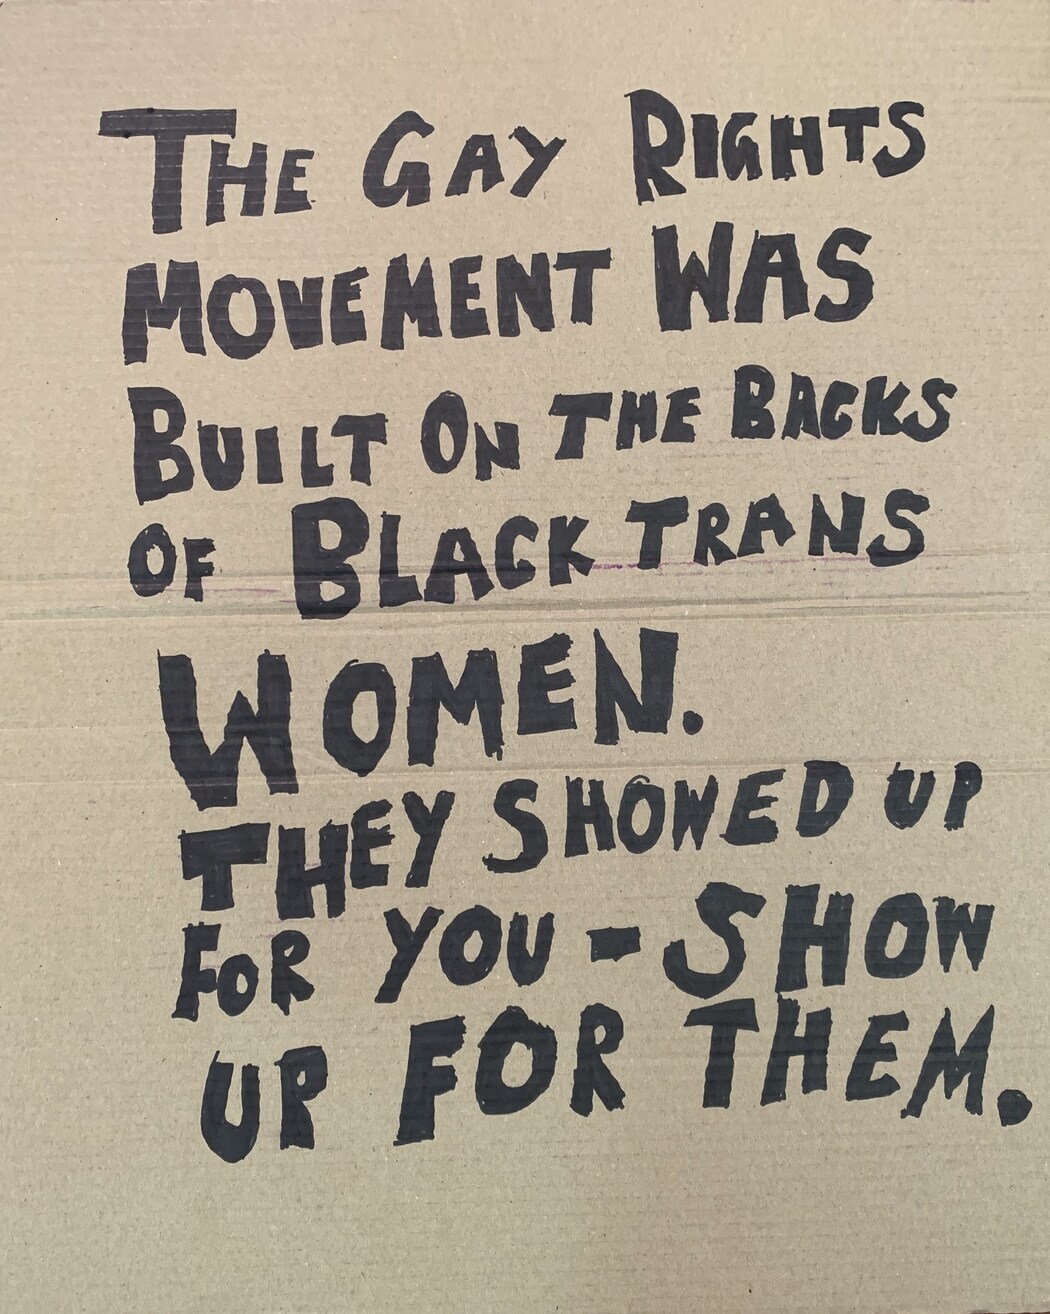 THE GAY RIGHTS
MOVEMENT WAS
BUILT ON THE BACKS
OF BLACK TRANS
WOMEN.
THEY SHOWED UP
FOR YOU - SHOW
UP FOR THEM.